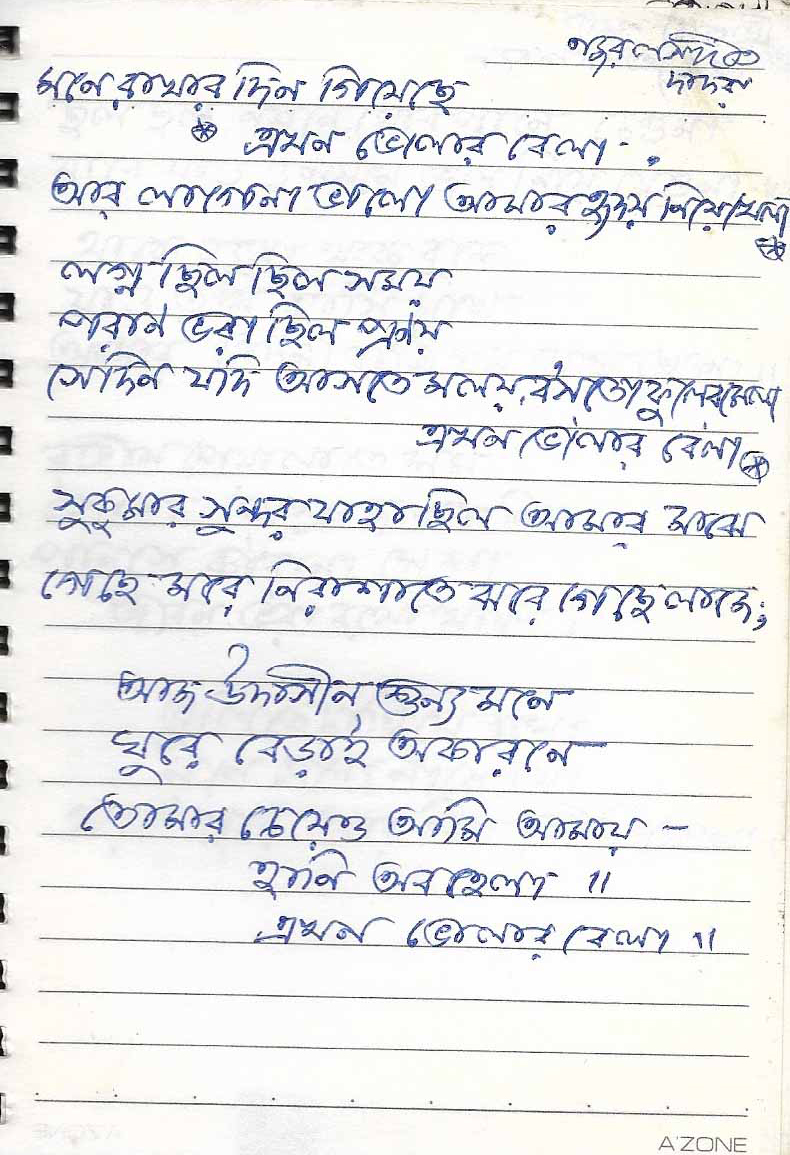 নজরুলগীতি
দাদরা
মনে রাখার দিন গিয়েছে
এখন ভোলার বেলা
আর লাগেনা ভালো আমার হৃদয় নিয়ে খেলা
লগ্ন ছিল ছিল সময়
পরাণ ভরা ছিল প্রণয়
সেদিন যদি আসতে মলয় বসতো ফুলের মেলা
এখন ভোলার বেলা
সুকুমার সুন্দর যাহা ছিল আমার মাঝে
গেছে মরে নিরাশাতে ঝরে গেছে লাজে;
আজ উদাসীন শুন্য মনে
ঘুরে বেড়াই অকারনে
তোমার চেয়েও আমি আমায় –
হানি অবহেলা ॥
এখন ভোলার বেলা ॥
A'ZONE